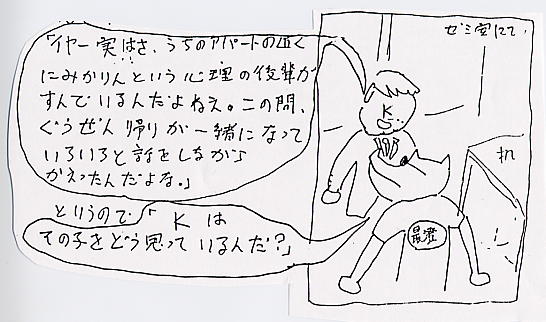 ゼミ室にて、
「イヤー実はさ、うちのアパートの近く
にみかりんという心理の後輩が
すんでいるんだよねえ。この間、
ぐうぜん帰りが一緒になって
いろいろと話をしながら
かえったんだよな。」
K
机
というので「Kは
その子をどう思っているんだ?」
最澄